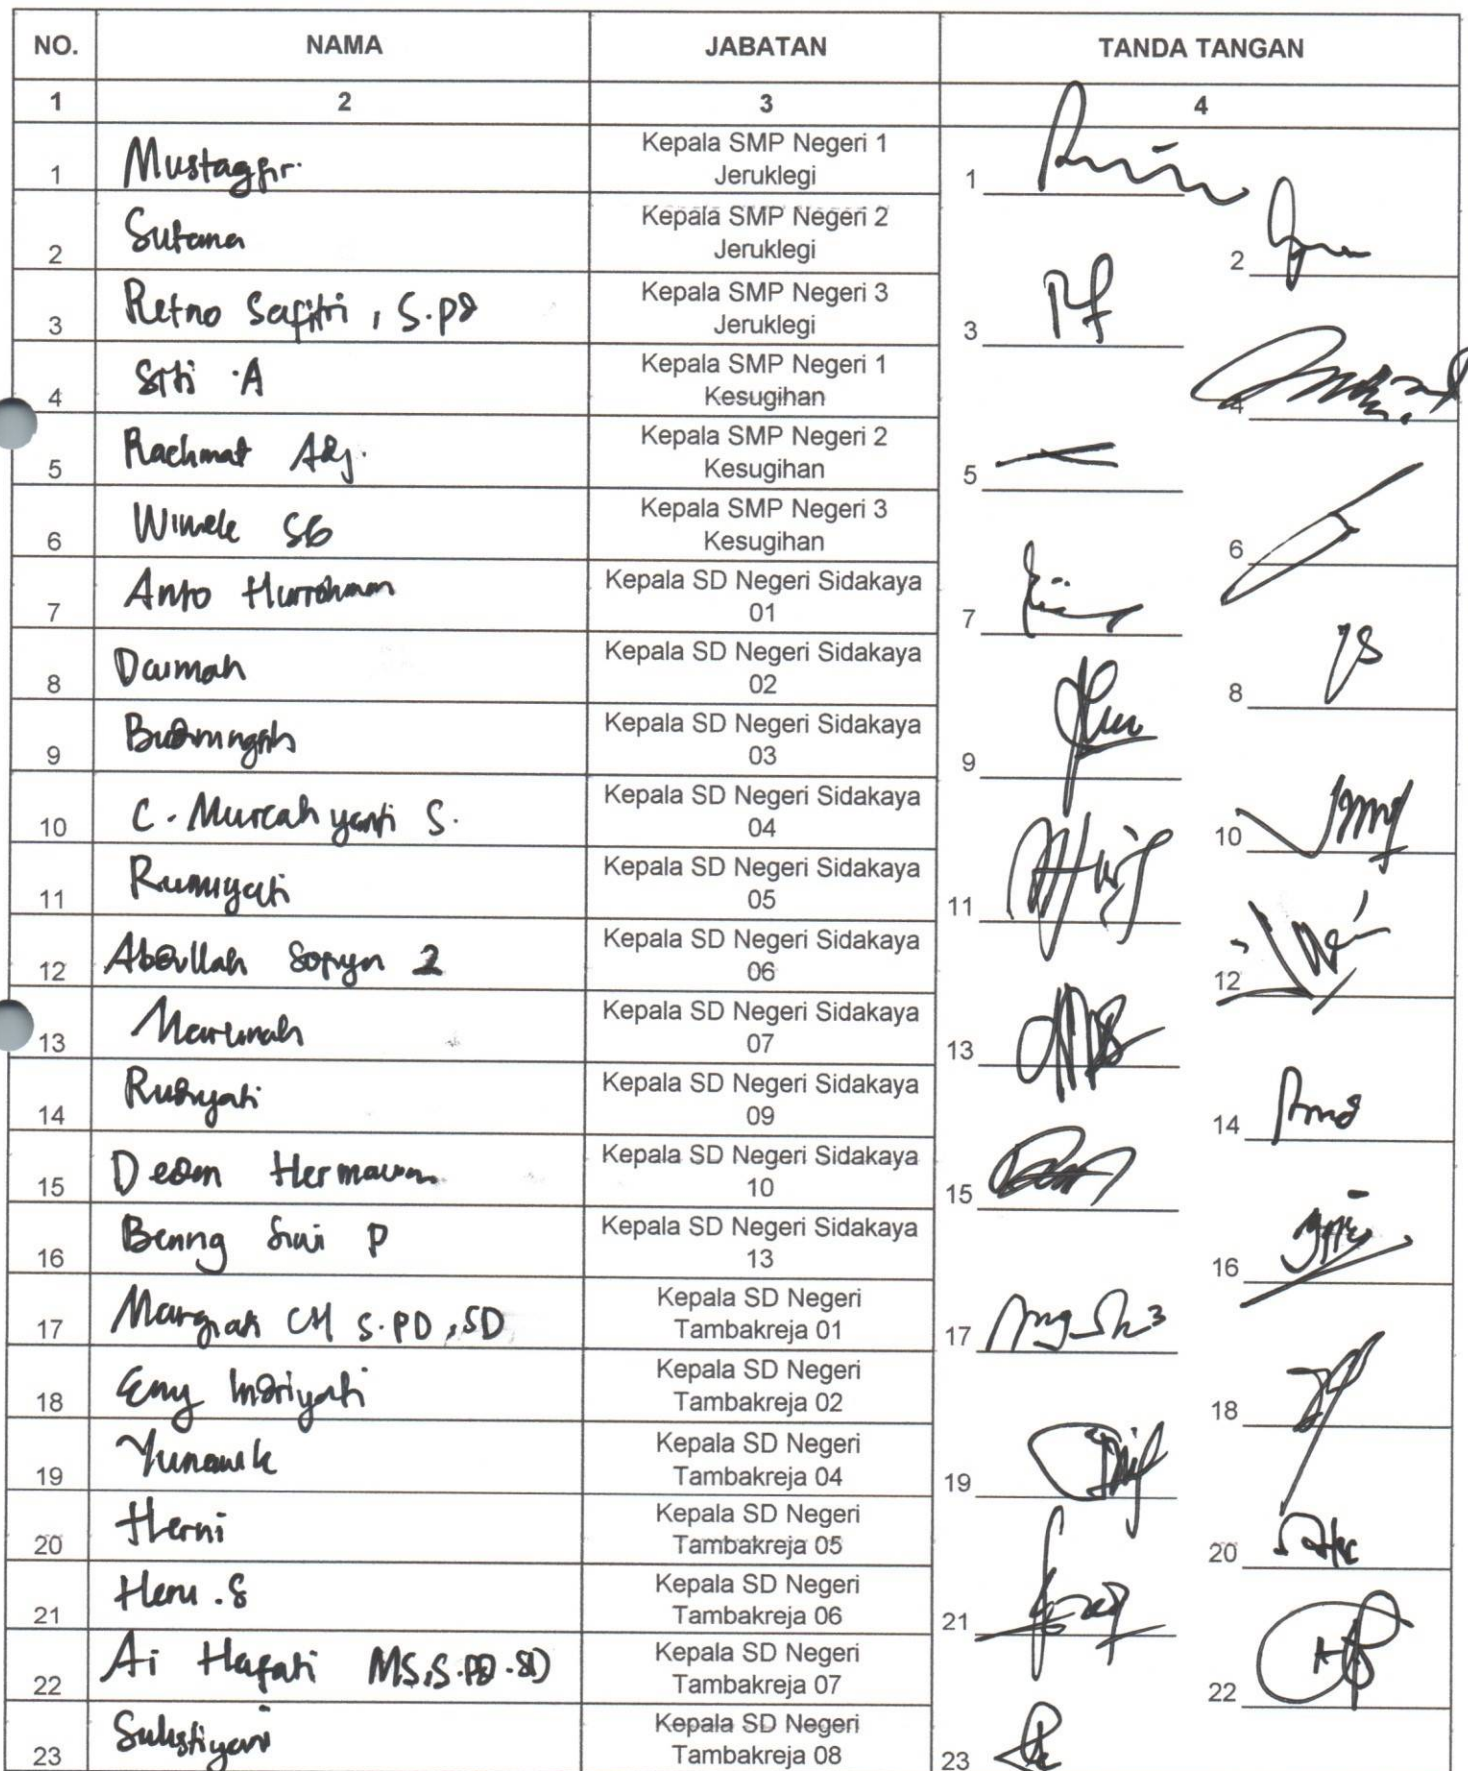 NO. NAMA JABATAN TANDA TANGAN
1 2 3 4
1 Mustaggfir. Kepala SMP Negeri 1 Jeruklegi 1
2 Sutama Kepala SMP Negeri 2 Jeruklegi 2
3 Retno Safitri, S.Pd Kepala SMP Negeri 3 Jeruklegi 3
4 Siti .A Kepala SMP Negeri 1 Kesugihan 4
5 Rachmat Adj. Kepala SMP Negeri 2 Kesugihan 5
6 Kepala SMP Negeri 3 Kesugihan 6
7 Anto Kepala SD Negeri Sidakaya 01 7
8 Daimah Kepala SD Negeri Sidakaya 02 8
9 Kepala SD Negeri Sidakaya 03 9
10 C. Murcahyanti S. Kepala SD Negeri Sidakaya 04 10
11 Rumiyati Kepala SD Negeri Sidakaya 05 11
12 Abdullah Sopyan 2 Kepala SD Negeri Sidakaya 06 12
13 Kepala SD Negeri Sidakaya 07 13
14 Rudiyati Kepala SD Negeri Sidakaya 09 14
15 Dedan Hermawan Kepala SD Negeri Sidakaya 10 15
16 P Kepala SD Negeri Sidakaya 13 16
17 Margiati CH S.PD,SD Kepala SD Negeri Tambakreja 01 17
18 Eny Indriyati Kepala SD Negeri Tambakreja 02 18
19 Kepala SD Negeri Tambakreja 04 19
20 Herni Kepala SD Negeri Tambakreja 05 20
21 Heru .S Kepala SD Negeri Tambakreja 06 21
22 Ai Hayati MS,S.Pd.SD Kepala SD Negeri Tambakreja 07 22
23 Sulistiyani Kepala SD Negeri Tambakreja 08 23